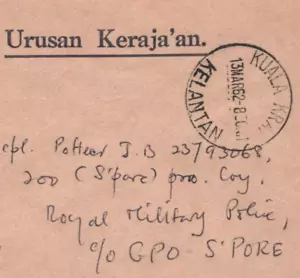 Urusan Keraja'an.
KUALA KRAI
13MAR62-8
KELANTAN
cpl. Potter J.B 23793068,
200 (S'pore) pro. Coy,
Royal Military Police,
c/o GPO S'PORE